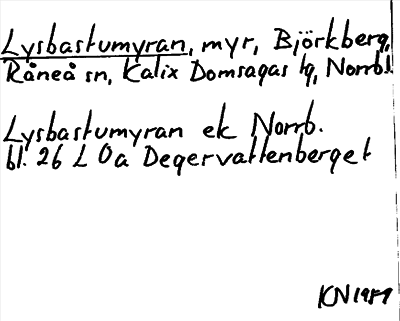 Lysbastumyran, myr, Björkberg,
Råneå sn, Kalix Domsagas tg, Norrbl.
Lysbastumyran ek Norrb.
bl. 26 L 0a Degervattenberget
KN 1989